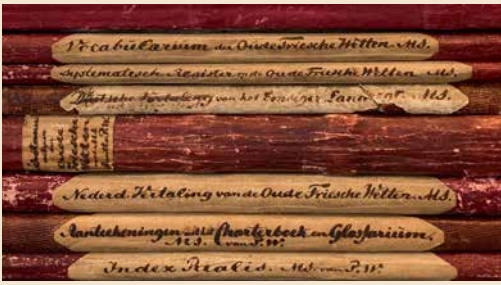 Vocabularium der Oude Friesche Wetten. MS.
Systematesch Register op de Oude Friesche Wetten MS.
Duitsche Vertaling van het Emsiger Landrecht MS.
oude
Friesche
Wetten
Nederd. Vertaling van de Oude Friesche Wetten. MS.
Aanteekeningen uit het Charterboek en Glossarium.
MS. van P.W.
Index Realis. MS. van P.W.